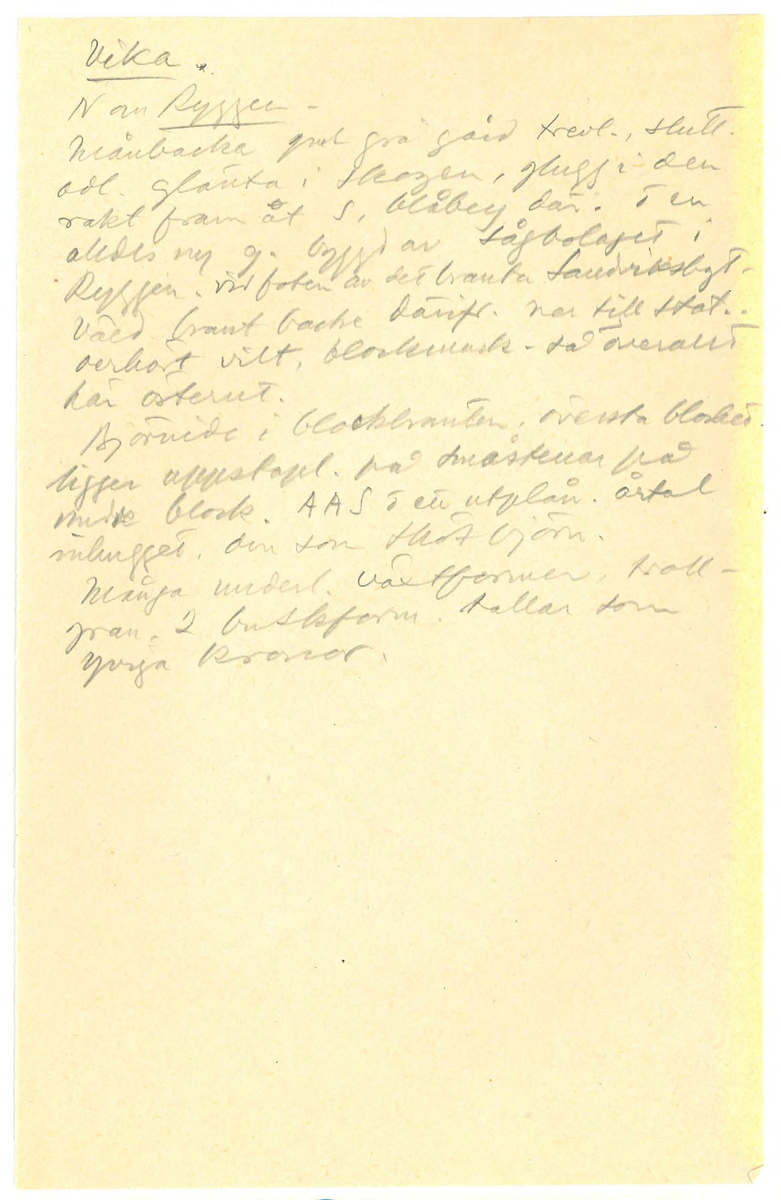 Vika.
N om Ryggen -
Månbacka gml grå gård trevl., slutt.
odl. glänta i skogen, glugg i den
rakt fram åt S, blåberg där. o en
alldes ny g. byggd av sågbolaget i
Ryggen. vid foten av det branta Sandviksbgt-
Våld brant backe därifr. ner till stat..
oerhört vilt, blockmark - så överallt
här österut.
Björnide i blockbranten. översta blocket
ligger uppstapl. på småstenar på
undre block. AAS o ett utplån. årtal
inhugget. den som sköt björn.
Många underl. växtformer. troll-
gran. 2 buskform. tallar som
yviga kronor.